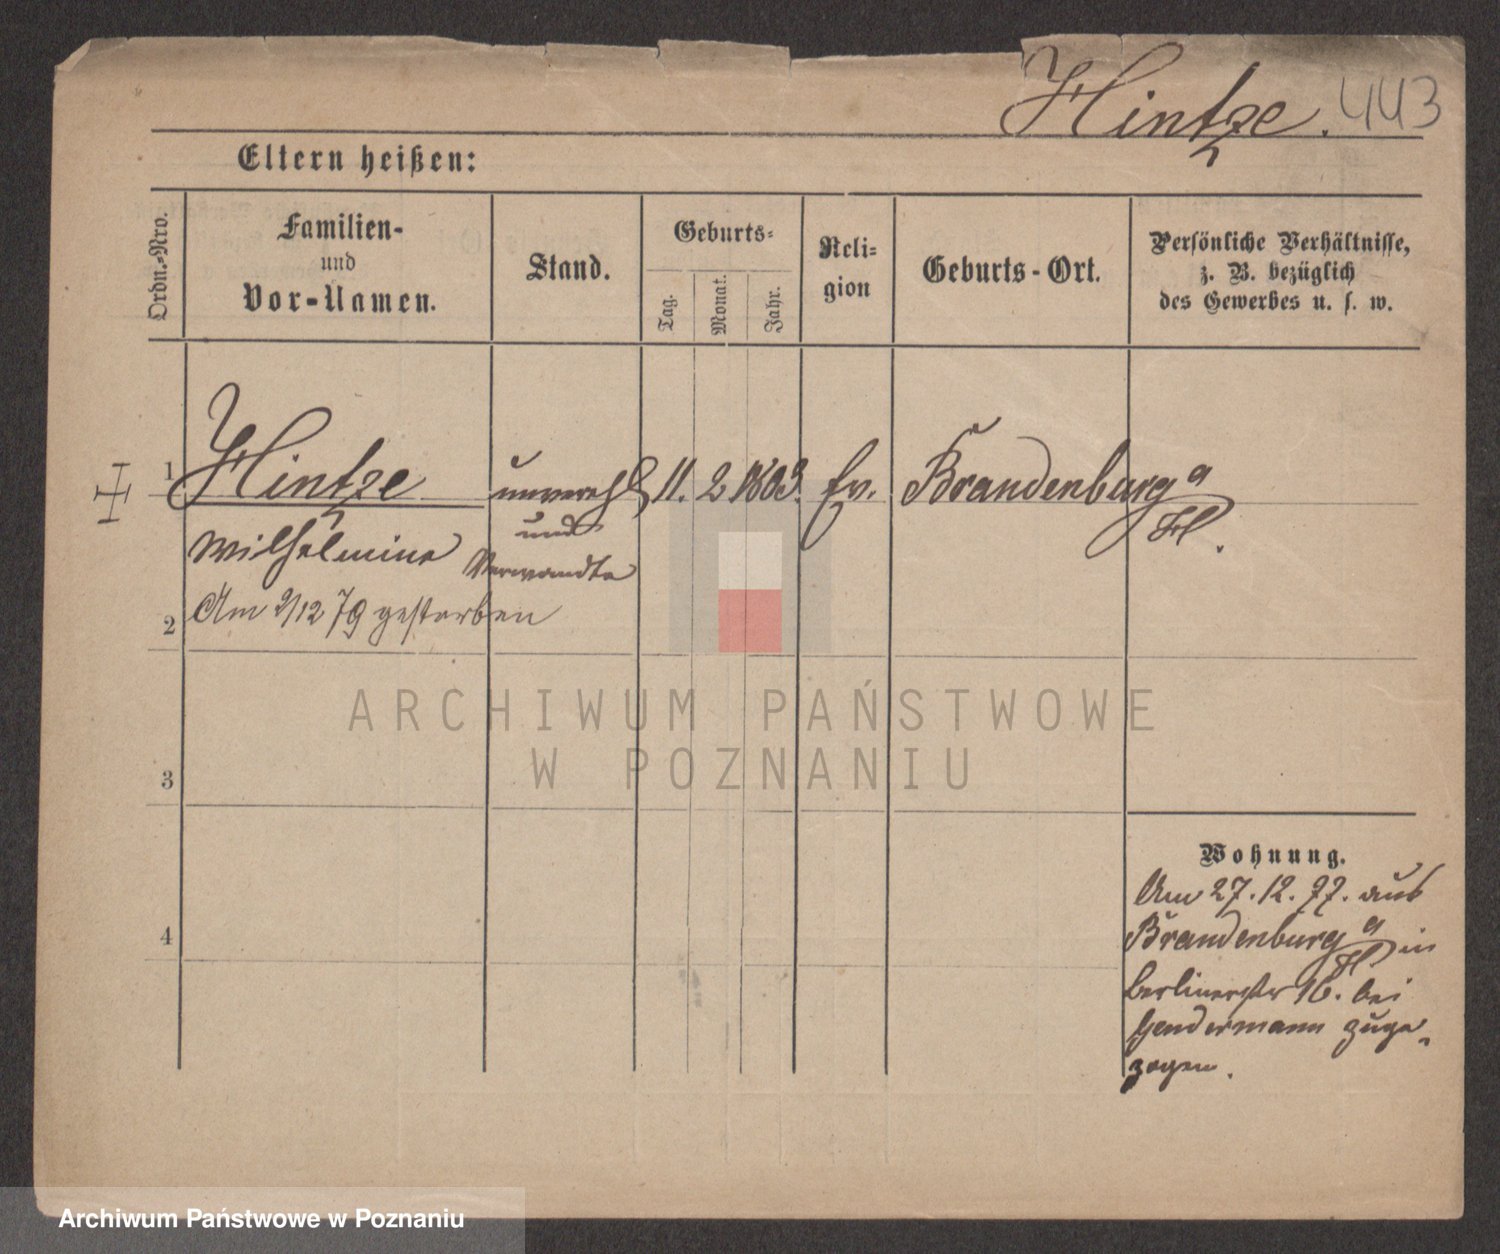 Hintze. 443
Eltern heißen:
Ordn.-Nro.
Familien-
und
Vor-Namen.
Stand.
Geburts-
Tag.
Monat.
Jahr.
Reli-
gion
Geburts-Ort.
Persönliche Verhältnisse,
z. B. bezüglich
des Gewerbes u. s. w.
1 Hintze unverehl 11. 2 1803. Ev. Brandenburg a
H.
Wilhelmine
und
Verwandte
2 Am 2/12 79 gestorben
ARCHIWUM PAŃSTWOWE
W POZNANIU
3
4
Wohnung.
Am 27.12.77. aus
Brandenburg a
H. in
Berlinerstr 16. bei
Gendermann zuge-
zogen.
Archiwum Państwowe w Poznaniu